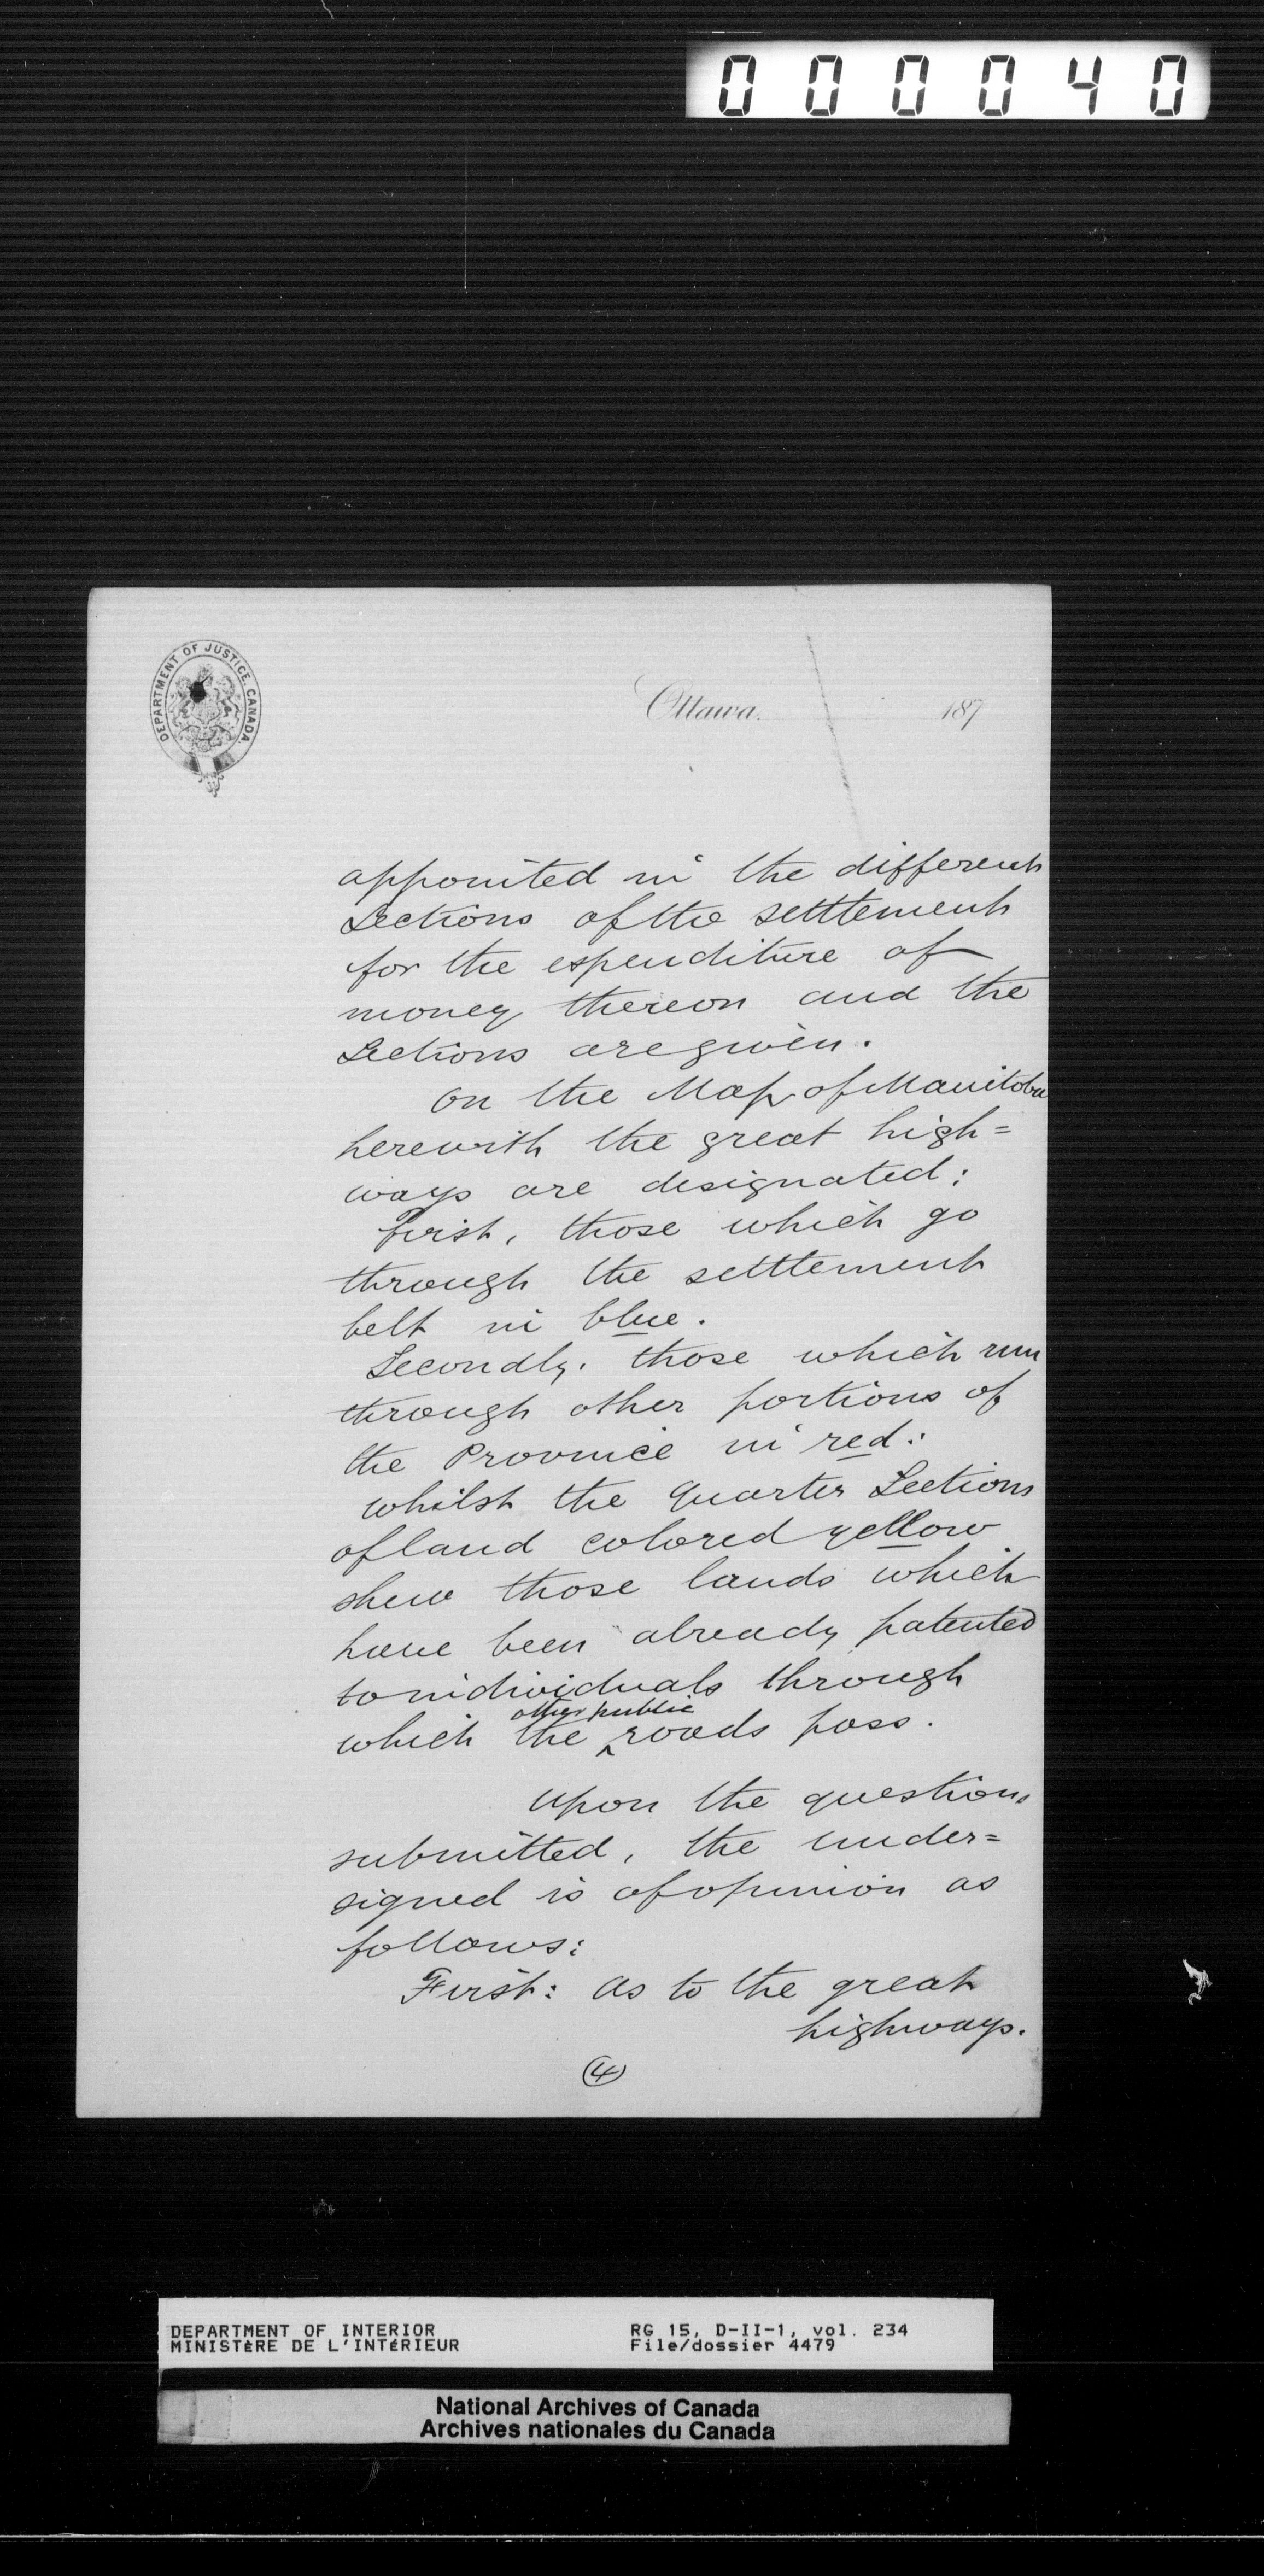 000040
DEPARTMENT OF JUSTICE, CANADA.
Ottawa. 187
appointed in the different
Sections of the settlement
for the expenditure of
money thereon and the
Sections are given.
On the Map of Manitoba
herewith the great high=
ways are designated:
First, those which go
through the settlement
belt in blue.
Secondly. those which run
through other portions of
the Province in red:
whilst the quarter Sections
of land colored yellow
shew those lands which
have been already patented
to individuals through
other public
which the ^ roads pass.
Upon the questions
submitted, the under=
signed is of opinion as
follows:
First: as to the great
highways.
(4)
DEPARTMENT OF INTERIOR RG 15, D-II-1, vol. 234
MINISTÈRE DE L'INTÉRIEUR File/dossier 4479
National Archives of Canada
Archives nationales du Canada